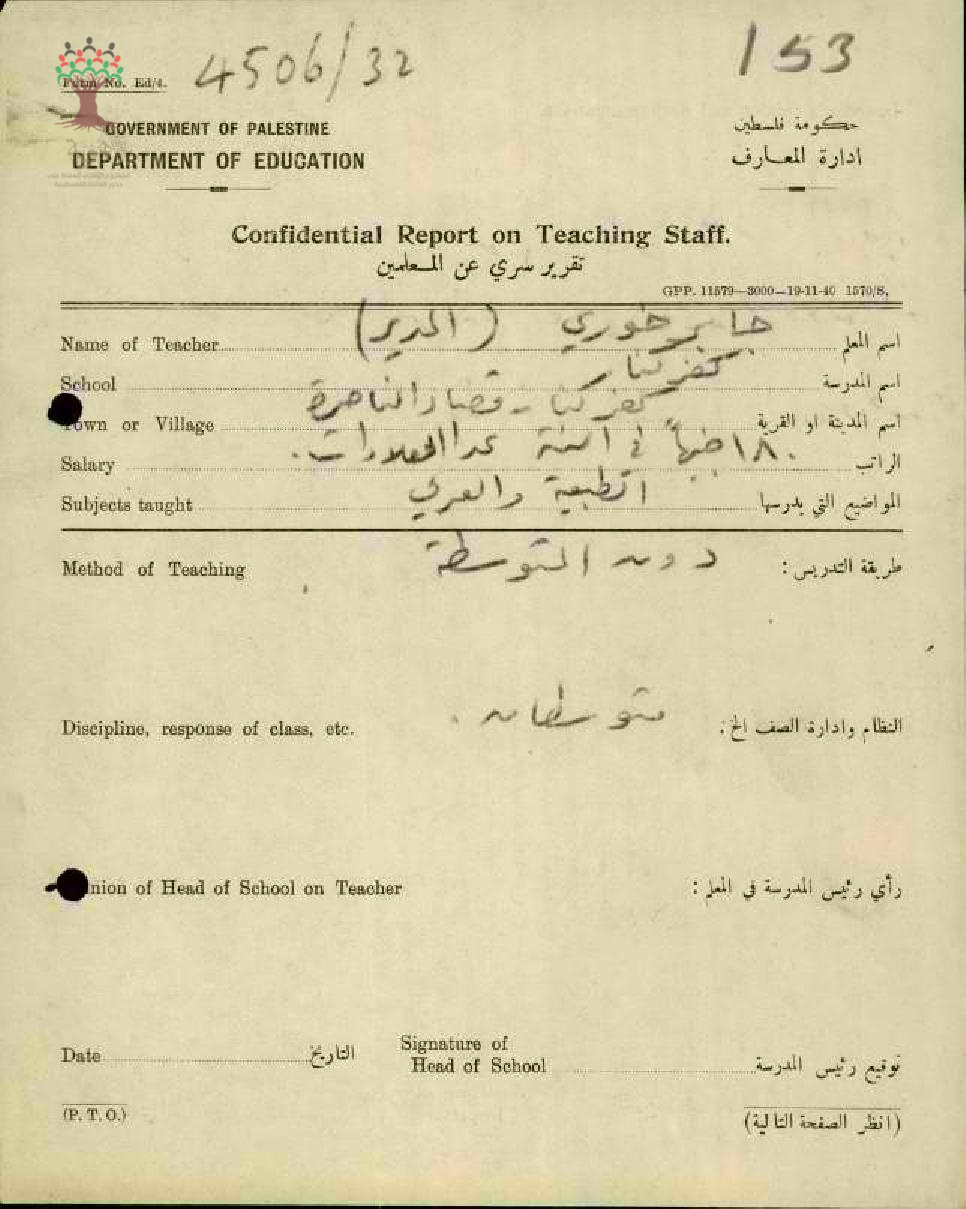 4506/32
153
Form No. Ed/4.
GOVERNMENT OF PALESTINE
حكومة فلسطين
DEPARTMENT OF EDUCATION
ادارة المعارف
Confidential Report on Teaching Staff.
تقرير سري عن المعلمين
GPP. 11579—3000—19-11-40 1570/S.
Name of Teacher جابر خوري (المدير) اسم المعلم
School كفر كنا اسم المدرسة
Town or Village كفر كنا - قضاء الناصرة اسم المدينة او القرية
Salary ١٨٠ جنيهاً في السنة عدا العلاوات. الراتب
Subjects taught الطبيعة والعربي المواضيع التي يدرسها
Method of Teaching دون المتوسطة طريقة التدريس :
Discipline, response of class, etc. متوسطان . النظام وادارة الصف الخ :
nion of Head of School on Teacher رأي رئيس المدرسة في المعلم :
Date التاريخ
Signature of Head of School توقيع رئيس المدرسة
(P. T. O.)
(انظر الصفحة التالية)